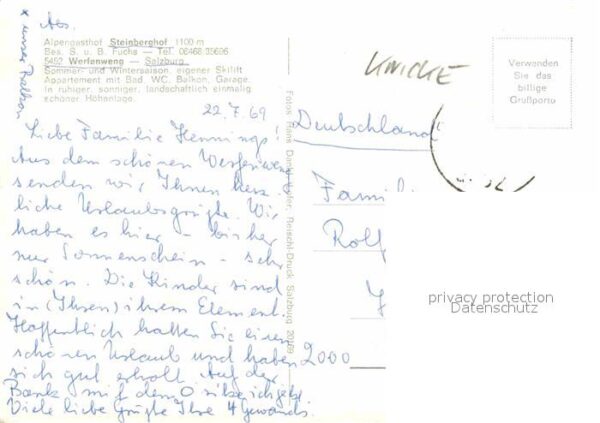 Abs.
* unser Balkon
Alpengasthof Steinberghof 1100 m
Bes. S. u. B. Fuchs — Tel. 06468/35696
5452 Werfenweng — Salzburg
Sommer- und Wintersaison, eigener Skilift
Appartement mit Bad, WC, Balkon, Garage.
In ruhiger, sonniger, landschaftlich einmalig
schöner Höhenlage.
22.7.69
Liebe Familie Hennings!
Aus dem schönen Werfenweng
senden wir Ihnen herz-
liche Urlaubsgrüße. Wir
haben es hier – bisher
nur Sonnenschein – sehr
schön. Die Kinder sind
in (Ihren) ihrem Element.
Hoffentlich hatten Sie einen
schönen Urlaub und haben
sich gut erholt. Auf der
Bank mit dem O sitze ich gerade
Viele liebe Grüße Ihre 4
Fotos Hans Reischl-Druck, Salzburg
KNICKE
Verwenden
Sie das
billige
Grußporto
Deutschland
Famili
Rolf
2000
privacy protection
Datenschutz